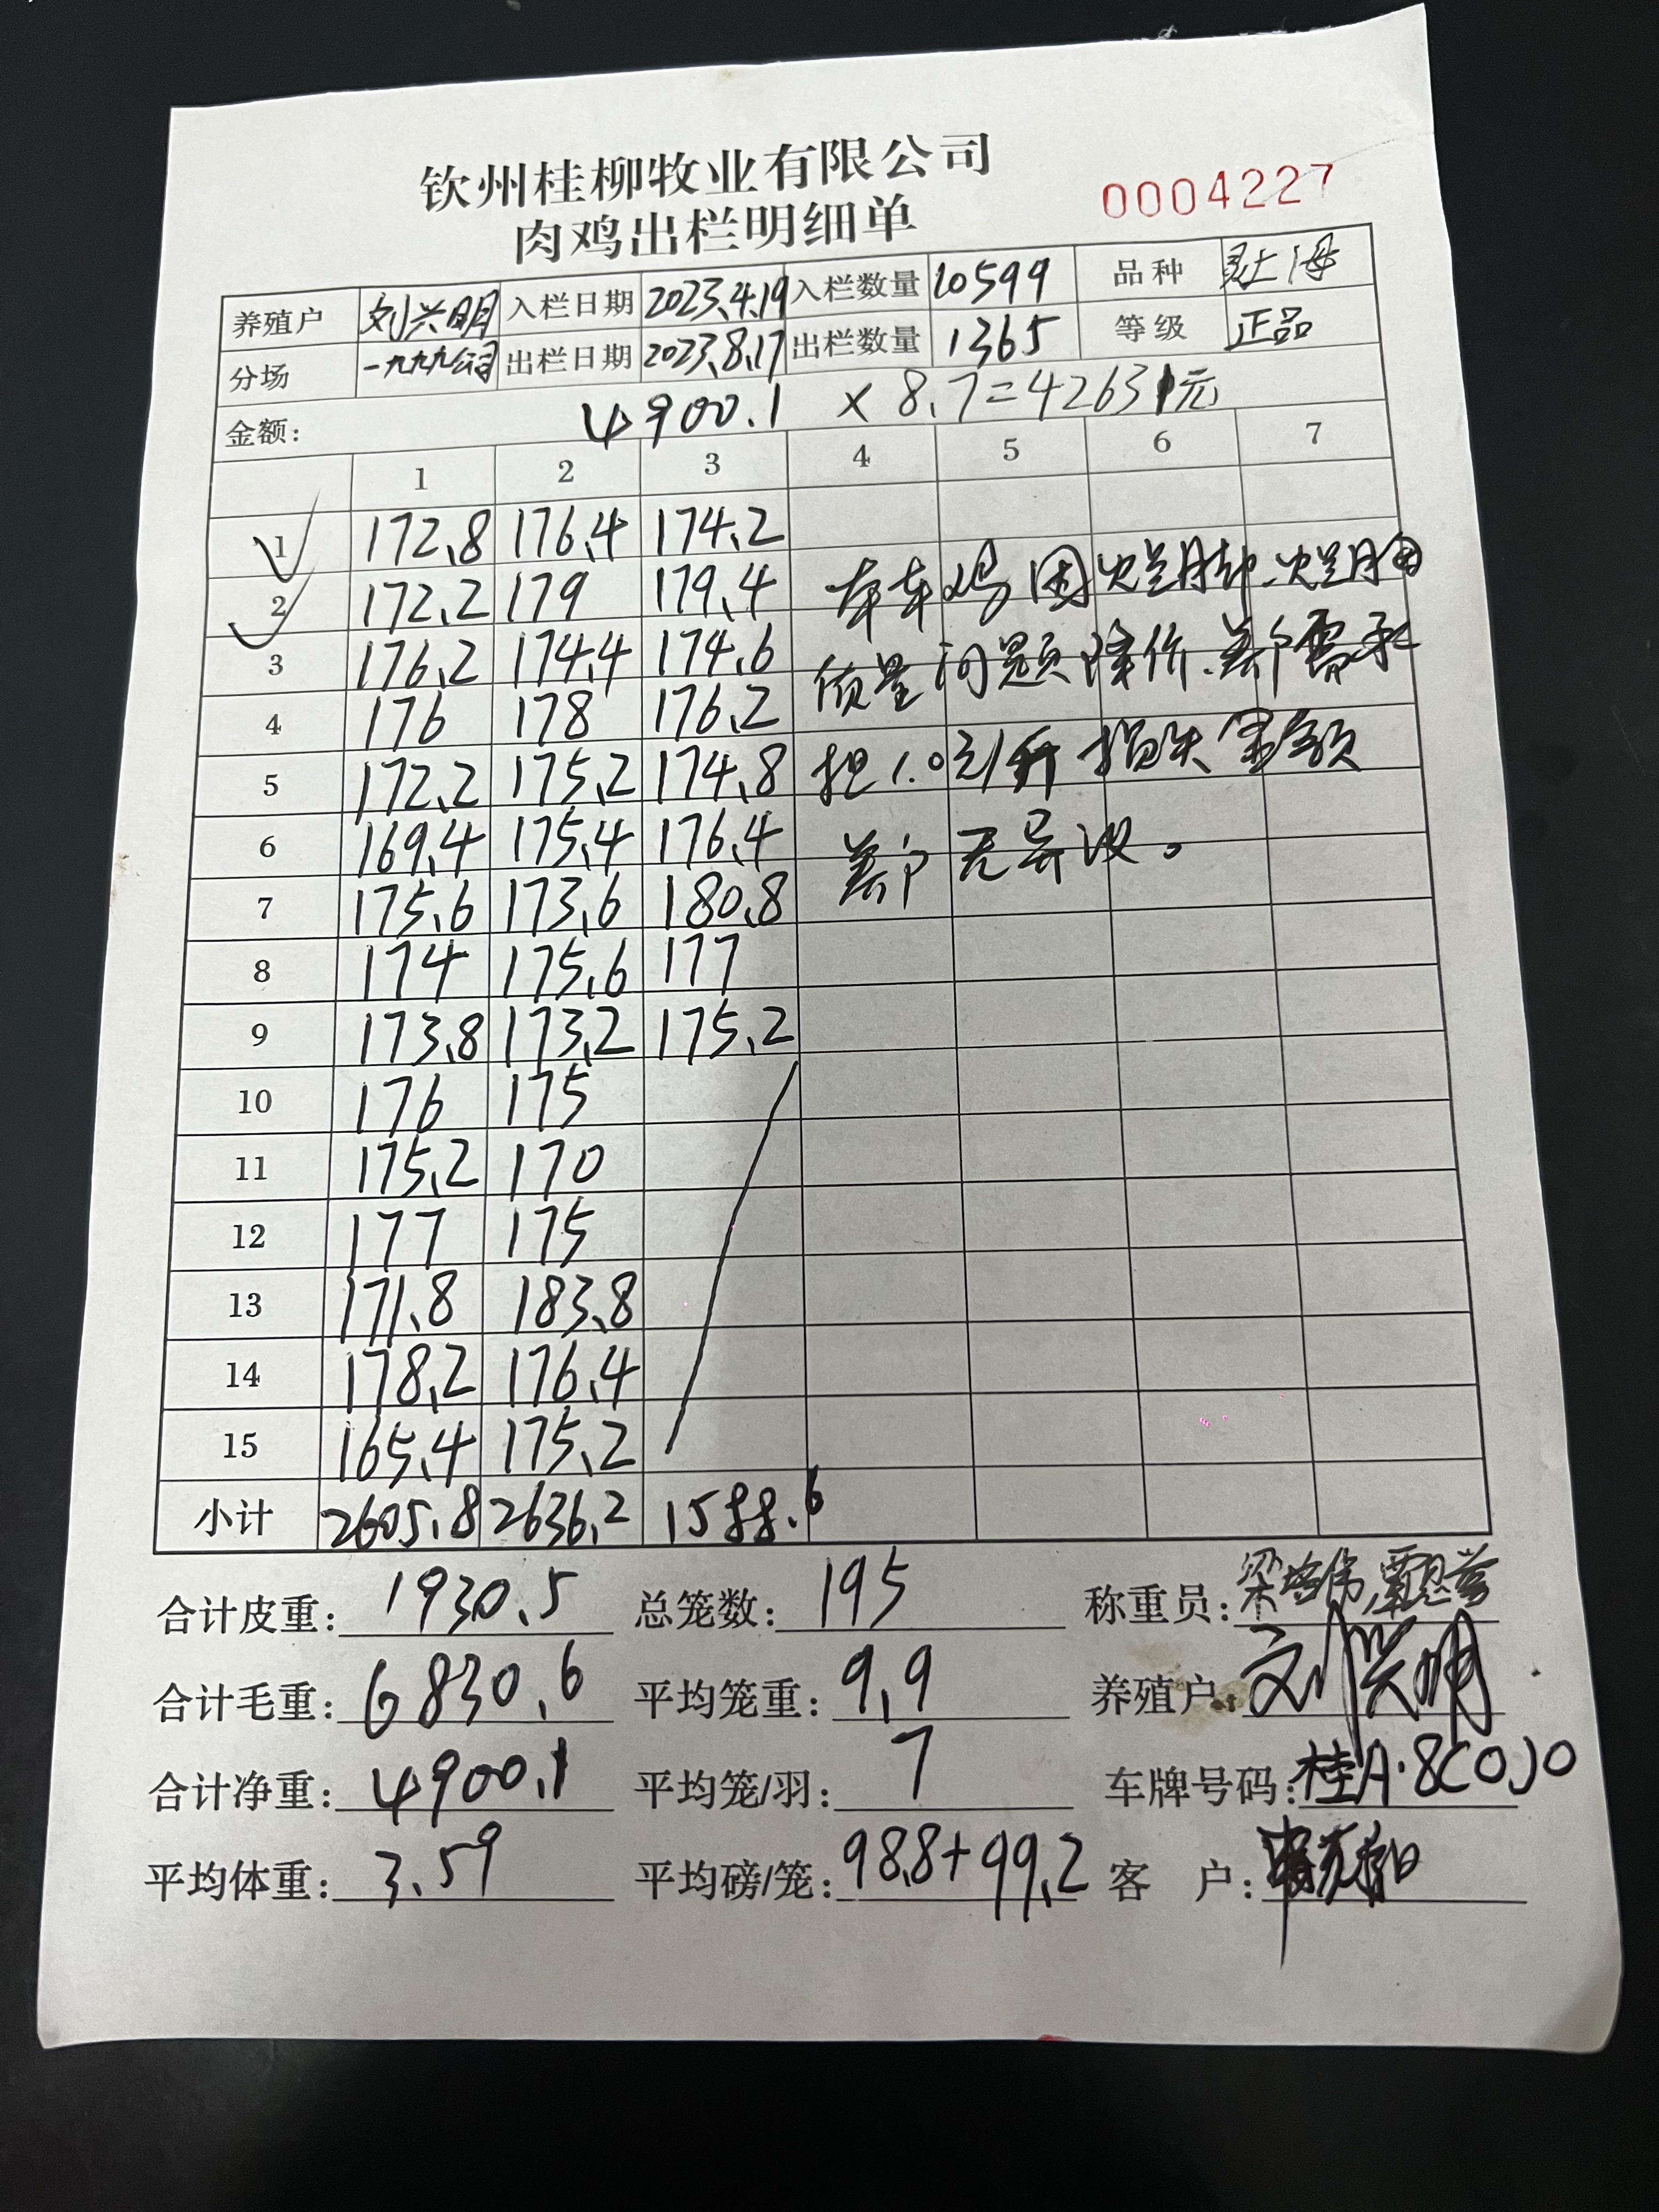 钦州桂柳牧业有限公司
肉鸡出栏明细单
0004227
养殖户 刘兴明 入栏日期 2023.4.19 入栏数量 10599 品种
分场 一九九九公司 出栏日期 2023.8.17 出栏数量 1365 等级 正品
金额: 4900.1 × 8.7=42631元
1 2 3 4 5 6 7
1 172.8 176.4 174.2
2 172.2 179 179.4
3 176.2 174.4 174.6
4 176 178 176.2
5 172.2 175.2 174.8
6 169.4 175.4 176.4
7 175.6 173.6 180.8
8 174 175.6 177
9 173.8 173.2 175.2
10 176 175
11 175.2 170
12 177 175
13 171.8 183.8
14 178.2 176.4
15 165.4 175.2
本车鸡因烂脚.烂胸
质量问题降价.养户需承
担1.0元/斤损失金额
养户无异议。
小计 2605.8 2636.2 1588.6
合计皮重: 1930.5 总笼数: 195 称重员:
合计毛重: 6830.6 平均笼重: 9.9 养殖户: 刘兴明
合计净重: 4900.1 平均笼/羽: 7 车牌号码: 桂A·8C0J0
平均体重: 3.59 平均磅/笼: 98.8+99.2 客 户: